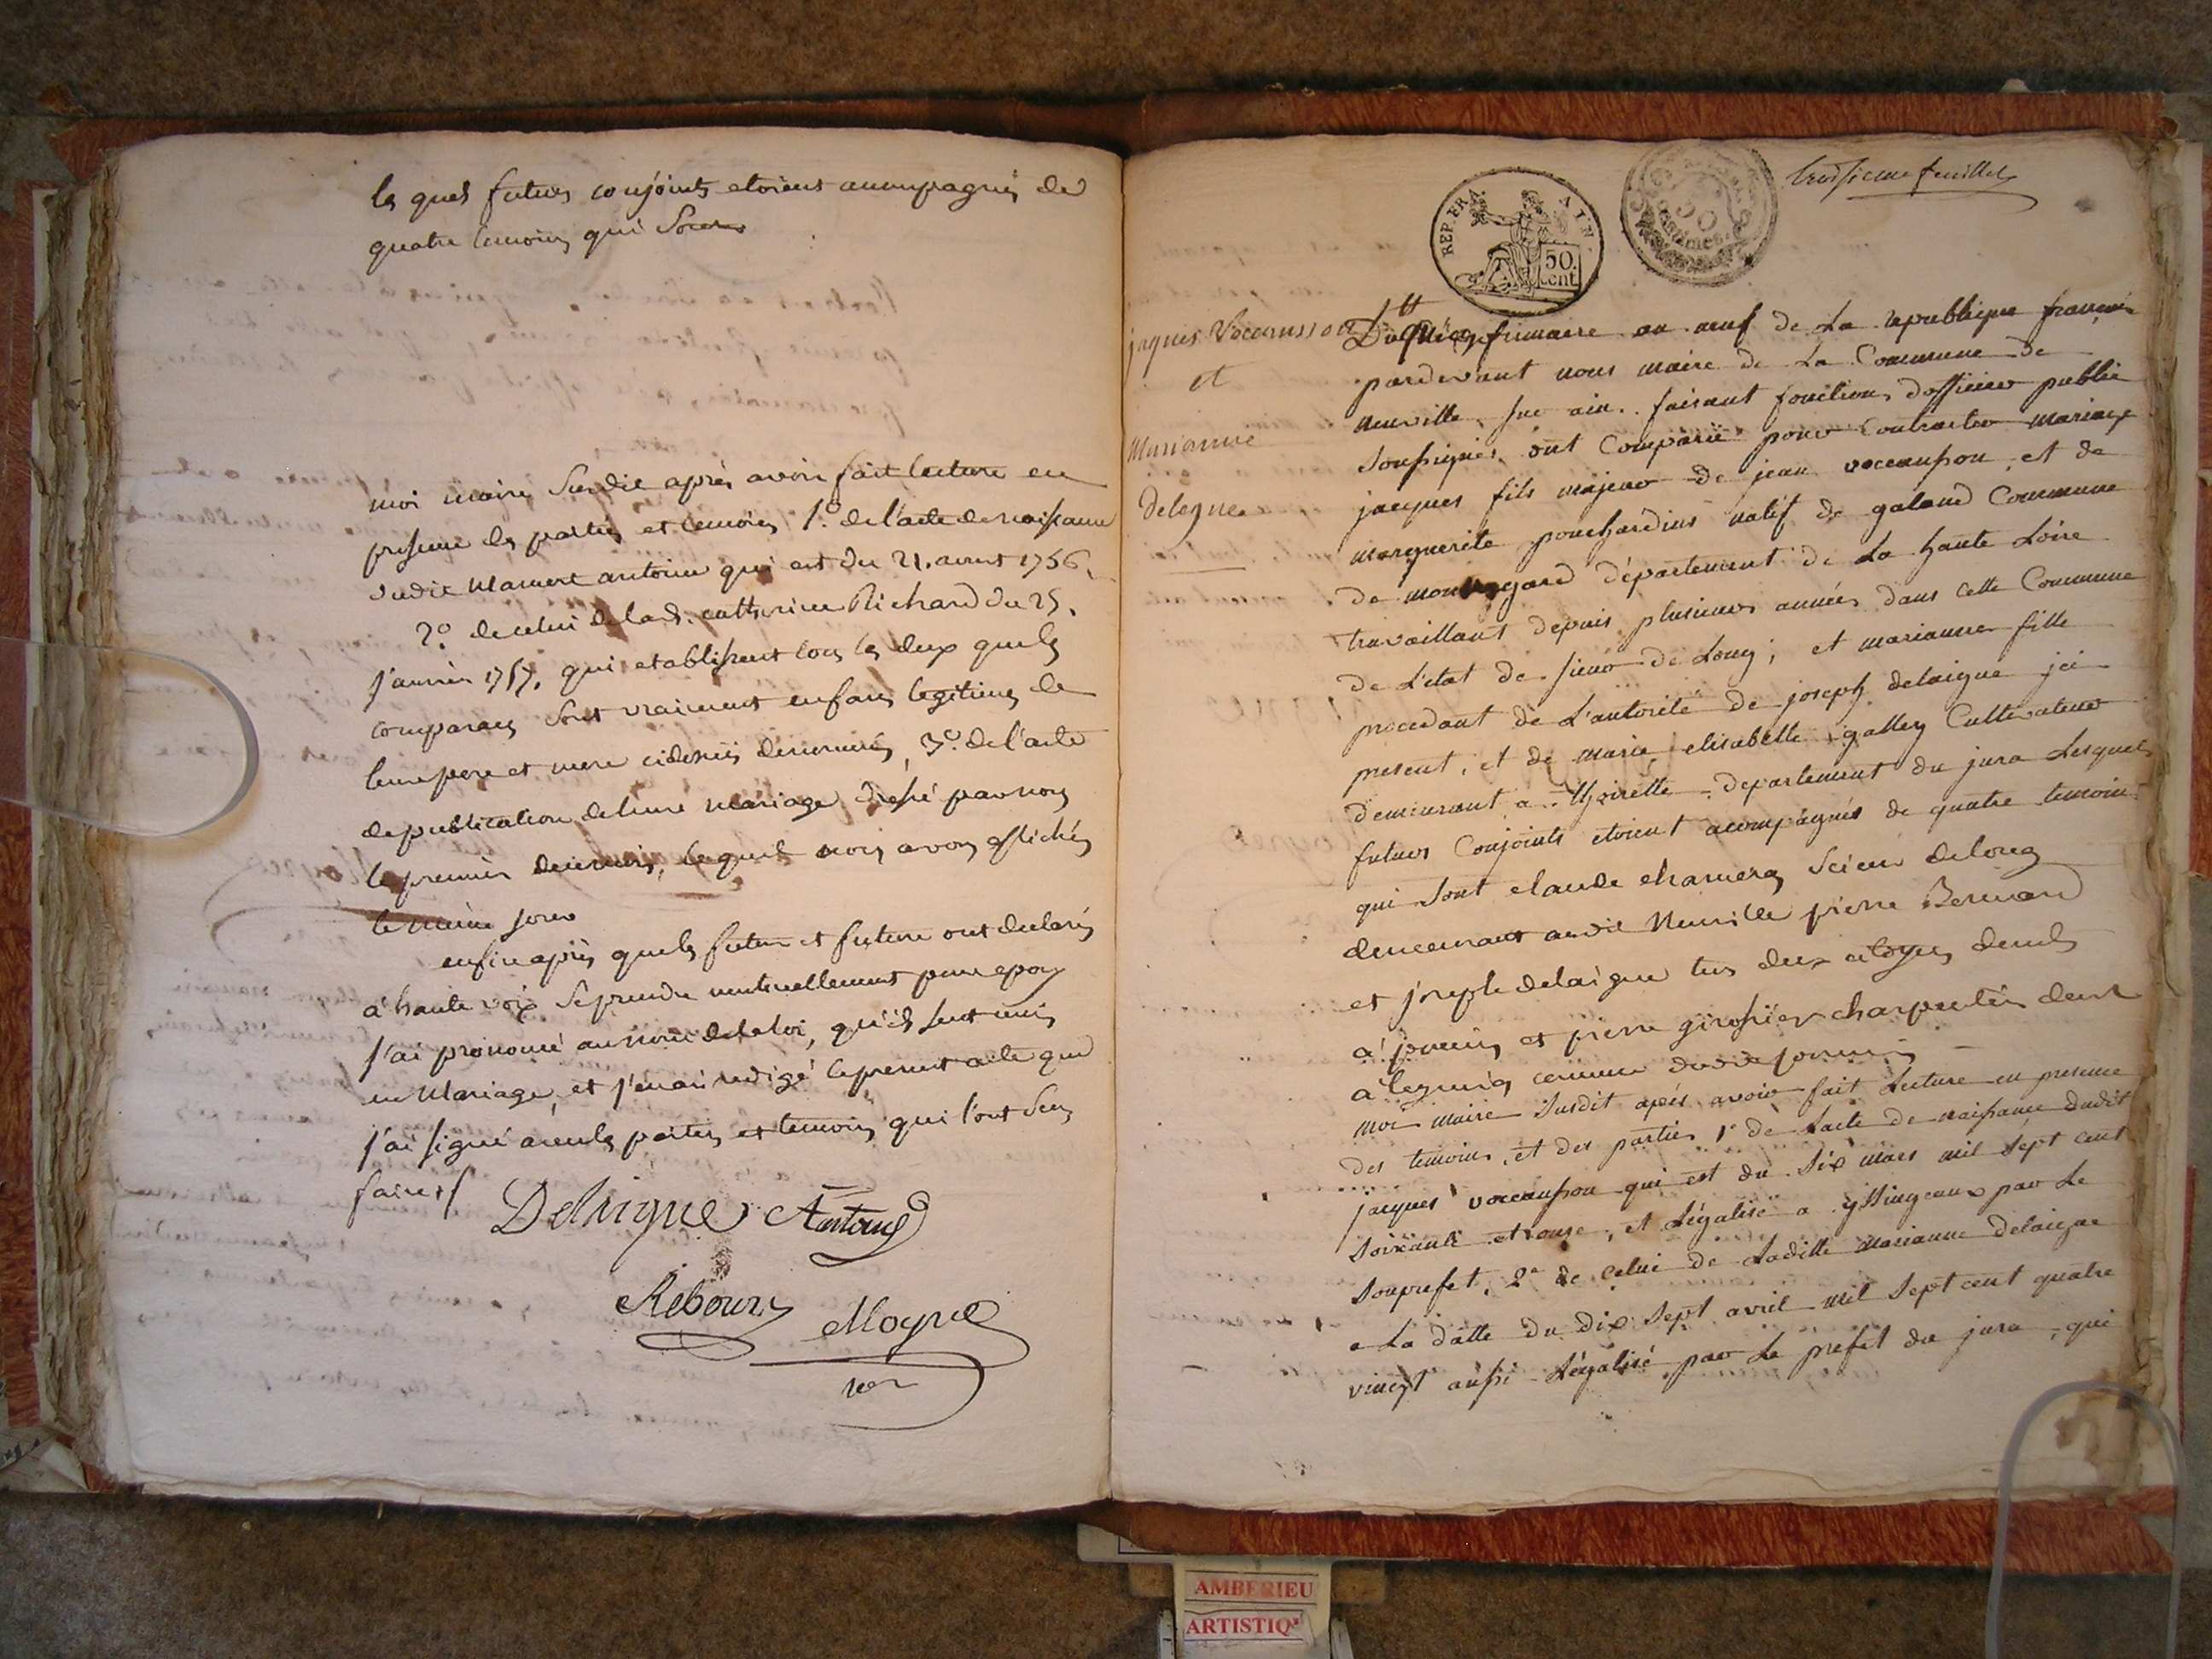 les quels futurs conjoints etoient accompagnés de
quatre temoins qui sont
moi maire susdit aprés avoir fait lecture en
presence des parties et temoins 1.° de l'acte de naissance
dudit Mamert antoine qui est du 21. avril 1756.
2.° de celui de lad. catherine Richard du 25.
janvier 1757. qui etablissent tous les deux que les
comparans sont vraiment enfans legitimes de
leurs pere et mere cidessus denommés, 3.° de l'acte
de publication de leur mariage dressé par nous
le premier du mois, lequel nous avons affichés
le meme jour
enfin aprés que les futur et future ont declarés
à haute voix se prendre mutuellement pour epoux
j'ai prononcé au nom de la loi, qu'ils sont unis
en Mariage, et j'en ai redigé le present acte que
j'ai signé avec les parties et temoins qui l'ont seu
faire /
Delaigue Antoine
Rebours Moyne
troisieme feuillet
REP. FRA
50 cent
jaques Vocanssion
et
Marianne
delegue
Du frimaire an neuf de La republique francais
pardevant nous maire de La Commune de
neuville sur ain. faisant fonctions dofficier public
soussignés, ont Comparü pour Contracter mariage
jacques fils majeur de jean voccansson, et de
marguerite pouchardins natif de galand Commune
de mon gard département de La haute Loire
travaillant depuis plusieurs années dans cette Commune
de L'etat de sieur de Long; et marianne fille
procedant de L'autorité de joseph delaigue ici
present, et de marie elisabette galley Cultivateur
demeurant a Thoirette departement du jura Lesquels
futurs Conjoints etoient acompagnés de quatre temoins
qui sont claude charnerg scieur de long
demeurant audit Neuville pierre Bernard
et joseph delaigue tus deux citoyens demls
à poncin et pierre girossier charpentier demt
a leymia commune dudit poncin
moi maire susdit apés avoir fait Lecture en presence
des temoins et des parties 1° de Lacte de naissance dudit
jacques voccansson qui est du six mars mil sept cent
soixante et onze, et Légalisé a yssingeaux par Le
souprefet, 2° de celui de Ladille marianne delaigue
a La datte du dix sept avril mil sept cent quatre
vingt aussi Légalisé par Le prefet du jura, qui
AMBERIEU
ARTISTIQ